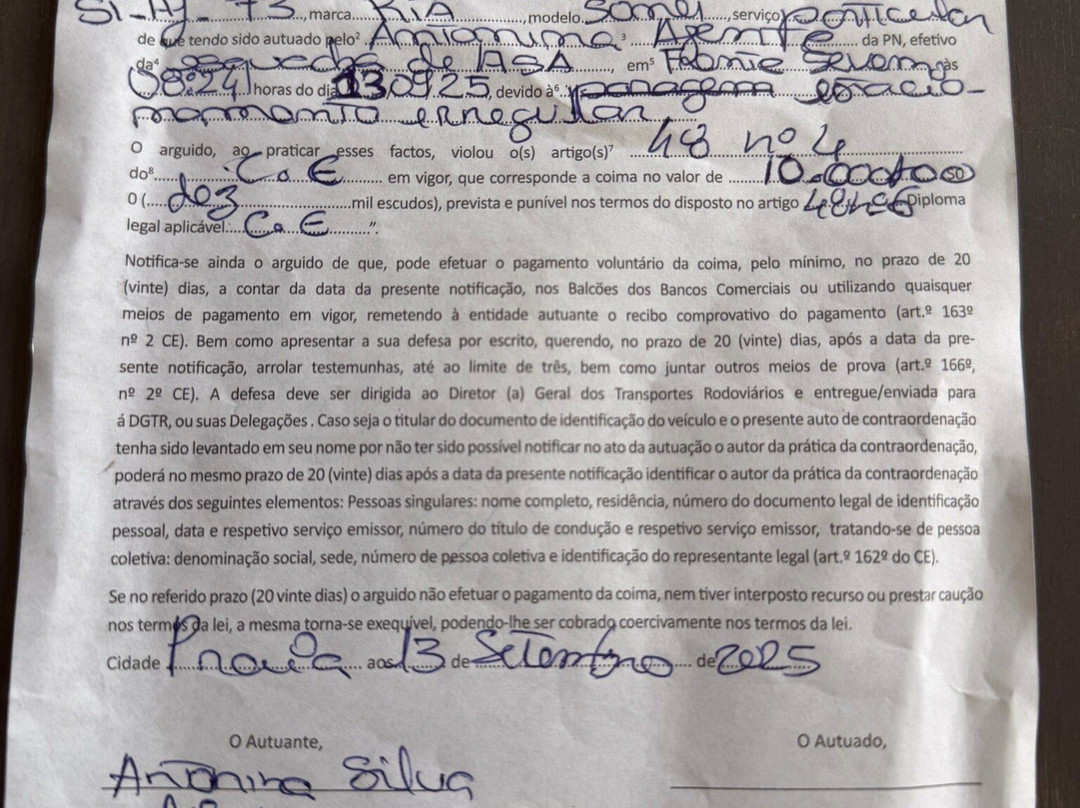 marca KIA, modelo, serviço particular
de que tendo sido autuado pelo² Antonina ³ Agente da PN, efetivo
da⁴ esquadra de ASA, em⁵ às
08:24 horas do dia 130925, devido à⁶ estacio-
namento irregular
O arguido, ao praticar esses factos, violou o(s) artigo(s)⁷ 48 nº 4
do⁸ C. E em vigor, que corresponde a coima no valor de
0 (dez mil escudos), prevista e punível nos termos do disposto no artigo 48 nº 6 Diploma
legal aplicável C. E ".
Notifica-se ainda o arguido de que, pode efetuar o pagamento voluntário da coima, pelo mínimo, no prazo de 20
(vinte) dias, a contar da data da presente notificação, nos Balcões dos Bancos Comerciais ou utilizando quaisquer
meios de pagamento em vigor, remetendo à entidade autuante o recibo comprovativo do pagamento (art.º 163º
nº 2 CE). Bem como apresentar a sua defesa por escrito, querendo, no prazo de 20 (vinte) dias, após a data da pre-
sente notificação, arrolar testemunhas, até ao limite de três, bem como juntar outros meios de prova (art.º 166º,
nº 2º CE). A defesa deve ser dirigida ao Diretor (a) Geral dos Transportes Rodoviários e entregue/enviada para
á DGTR, ou suas Delegações . Caso seja o titular do documento de identificação do veículo e o presente auto de contraordenação
tenha sido levantado em seu nome por não ter sido possível notificar no ato da autuação o autor da prática da contraordenação,
poderá no mesmo prazo de 20 (vinte) dias após a data da presente notificação identificar o autor da prática da contraordenação
através dos seguintes elementos: Pessoas singulares: nome completo, residência, número do documento legal de identificação
pessoal, data e respetivo serviço emissor, número do título de condução e respetivo serviço emissor, tratando-se de pessoa
coletiva: denominação social, sede, número de pessoa coletiva e identificação do representante legal (art.º 162º do CE).
Se no referido prazo (20 vinte dias) o arguido não efetuar o pagamento da coima, nem tiver interposto recurso ou prestar caução
nos termos da lei, a mesma torna-se exequível, podendo-lhe ser cobrado coercivamente nos termos da lei.
Cidade Praia aos 13 de Setembro de 2025
O Autuante, O Autuado,
Antonina Silva